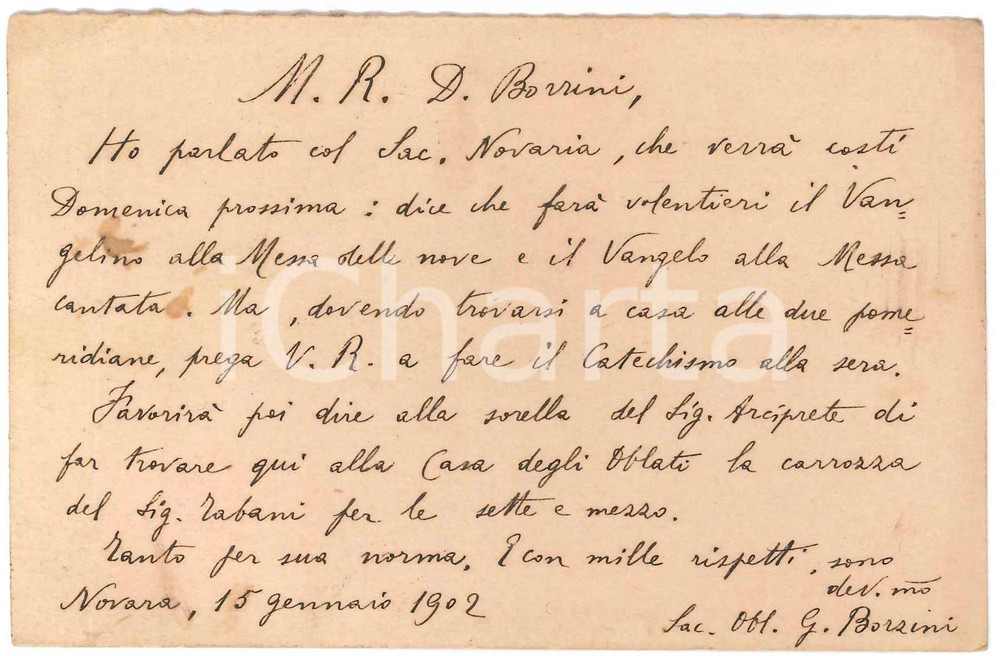 M. R. D. Borrini,
Ho parlato col Sac. Novaria, che verrà costì
Domenica prossima: dice che farà volentieri il Van=
gelino alla Messa delle nove e il Vangelo alla Messa
cantata. Ma, dovendo trovarsi a casa alle due pome=
ridiane, prega V. R. a fare il Catechismo alla sera.
Favorirà poi dire alla sorella del Sig. Arciprete di
far trovare qui alla Casa degli Oblati la carrozza
del Sig. Tabani per le sette e mezzo.
Tanto per sua norma. E con mille rispetti, sono
dev.mo
Novara, 15 gennaio 1902
Sac. Obl. G. Borzini
iCharta